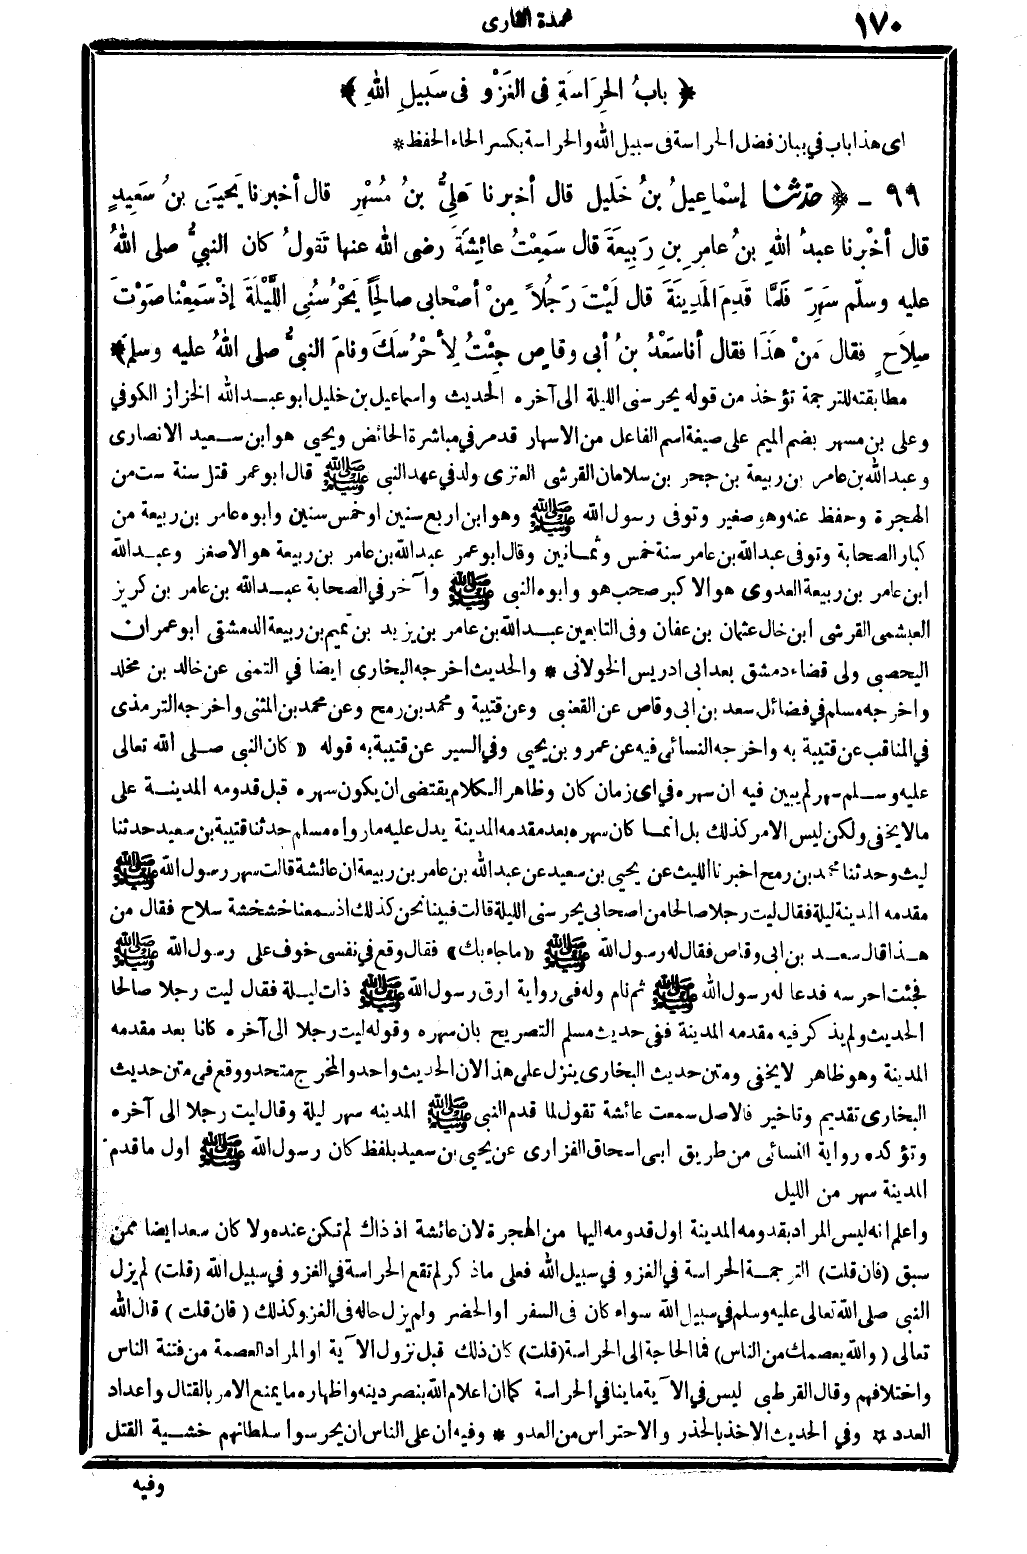 ١٧٠
عمدة القارى
﴿ بابُ الحِرَاسَةِ فى الغَزْوِ فى سَبِيلِ اللهِ ﴾
اى هذا باب في بيان فضل الحراسة فى سبيل الله والحراسة بكسر الحاء الحفظ *
٩٩ - ﴿ حدّثنا إسْماعِيلُ بنُ خَلِيل قال أخبرنا عَلِىُّ بنُ مُسْهِرٍ قال أخبرنا يَحيَى بنُ سَعِيدٍ
قال أخْبرنا عبدُ اللهِ بنُ عامِرِ بنِ رَبِيعَةَ قال سَمِعْتُ عائِشَةَ رضى الله عنها تَقولُ كان النبيُّ صلى اللهُ
عليه وسلّم سَهِرَ فَلَمَّا قَدِمَ المَدِينَةَ قال لَيْتَ رَجُلاً مِنْ أصْحابى صالِحاً يَحْرُسُنِى اللَّيْلَةَ إذْ سَمِعْنا صَوْتَ
سِلاَحٍ فقال مَنْ هَذَا فقال أنا سَعْدُ بنُ أبى وقاص جِئْتُ لِأَحْرُسَكَ ونامَ النبيُّ صلى اللهُ عليه وسلم ﴾
مطابقته للترجمة تؤخذ من قوله يحرسنى الليلة الى آخره الحديث واسماعيل بن خليل ابو عبد الله الخزاز الكوفي
وعلى بن مسهر بضم الميم على صيغة اسم الفاعل من الاسهار قد مر في مباشرة الحائض ويحيى هو ابن سعيد الانصارى
وعبد الله بن عامر بن ربيعة بن جحر بن سلامان القرشى العنزى ولد في عهد النبى ﷺ قال ابو عمر قتل سنة ست من
الهجرة وحفظ عنه وهو صغير وتوفى رسول الله ﷺ وهو ابن اربع سنين او خمس سنين وابوه عامر بن ربيعة من
كبار الصحابة وتوفى عبد الله بن عامر سنة خمس وثمانين وقال ابو عمر عبد الله بن عامر بن ربيعة هو الاصغر وعبد الله
ابن عامر بن ربيعة العدوى هو الاكبر صحب هو وابوه النبى ﷺ وآخر في الصحابة عبد الله بن عامر بن كريز
العبشمى القرشى ابن خال عثمان بن عفان وفى التابعين عبد الله بن عامر بن يزيد بن تميم بن ربيعة الدمشقى ابو عمران
اليحصبى ولى قضاء دمشق بعد ابى ادريس الخولانى * والحديث اخرجه البخارى ايضا في التمنى عن خالد بن مخلد
واخرجه مسلم في فضائل سعد بن ابى وقاص عن القعنبى وعن قتيبة ومحمد بن رمح وعن محمد بن المثنى واخرجه الترمذى
في المناقب عن قتيبة به واخرجه النسائى فيه عن عمرو بن يحيى وفي السير عن قتيبة به قوله « كان النبى صلى الله تعالى
عليه وسلم سهر لم يبين فيه ان سهره في اى زمان كان وظاهر الكلام يقتضى ان يكون سهره قبل قدومه المدينة على
مالا يخفى ولكن ليس الامر كذلك بل انما كان سهره بعد مقدمه المدينة يدل عليه مارواه مسلم حدثنا قتيبة بن سعيد حدثنا
ليث وحدثنا محمد بن رمح اخبرنا الليث عن يحيى بن سعيد عن عبد الله بن عامر بن ربيعة ان عائشة قالت سهر رسول الله ﷺ
مقدمه المدينة ليلة فقال ليت رجلا صالحا من اصحابى يحرسنى الليلة قالت فبينا نحن كذلك اذ سمعنا خشخشة سلاح فقال من
هذا قال سعد بن ابى وقاص فقال له رسول الله ﷺ « ماجاء بك » فقال وقع في نفسى خوف على رسول الله ﷺ
فجئت احرسه فدعا له رسول الله ﷺ ثم نام وله فى رواية ارق رسول الله ﷺ ذات ليلة فقال ليت رجلا صالحا
الحديث ولم يذكر فيه مقدمه المدينة ففى حديث مسلم التصريح بان سهره وقوله ليت رجلا الى آخره كانا بعد مقدمه
المدينة وهو ظاهر لا يخفى ومتن حديث البخارى ينزل على هذا لان الحديث واحد والمخرج متحد ووقع فى متن حديث
البخارى تقديم وتاخير فالاصل سمعت عائشة تقول لما قدم النبى ﷺ المدينه سهر ليلة وقال ليت رجلا الى آخره
وتؤكده رواية النسائى من طريق ابى اسحاق الفزارى عن يحيى بن سعيد بلفظ كان رسول الله ﷺ اول ماقدم
المدينة سهر من الليل
واعلم انه ليس المراد بقدومه المدينة اول قدومه اليها من الهجرة لان عائشة اذ ذاك لم تكن عنده ولا كان سعد ايضا ممن
سبق (فان قلت) الترجمة الحراسة في الغزو في سبيل الله فعلى ماذكر لم تقع الحراسة في الغزو في سبيل الله (قلت) لم يزل
النبى صلى الله تعالى عليه وسلم في سبيل الله سواء كان فى السفر او الحضر ولم يزل حاله فى الغزو كذلك ( فان قلت ) قال الله
تعالى ( والله يعصمك من الناس ) فما الحاجة الى الحراسة (قلت) كان ذلك قبل نزول الآية او المراد العصمة من فتنة الناس
واختلافهم وقال القرطبى ليس في الآية ما ينافي الحراسة كما ان اعلام الله بنصر دينه واظهاره ما يمنع الامر بالقتال واعداد
العدد * وفي الحديث الاخذ بالحذر والاحتراس من العدو * وفيه ان على الناس ان يحرسوا سلطانهم خشية القتل
وفيه